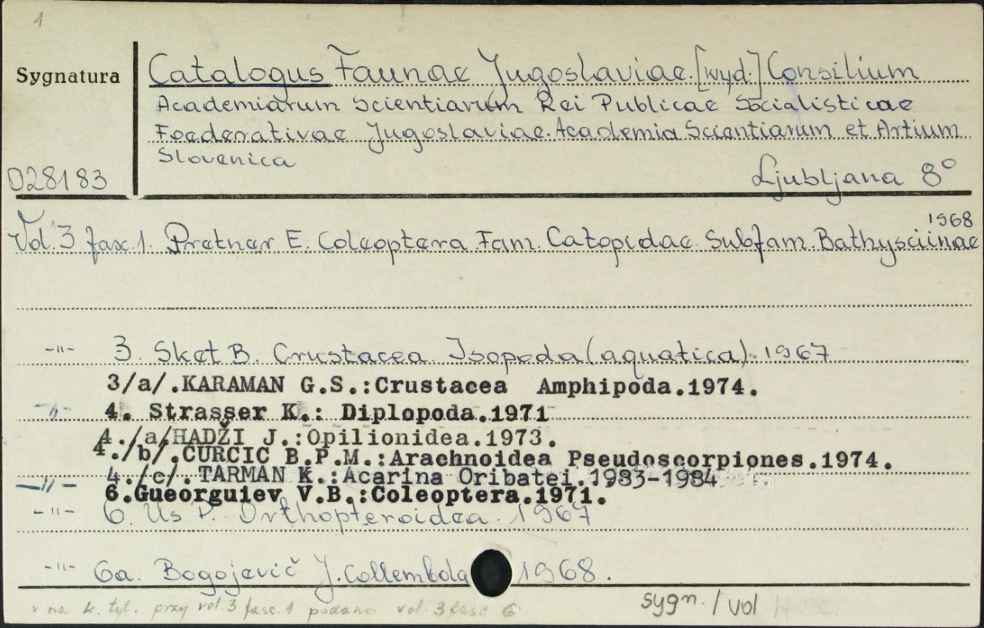 1
Sygnatura
Catalogus Faunae Jugoslaviae. [wyd.] Consilium
Academiarum Scientiarum Rei Publicae Socialisticae
Foederativae Jugoslaviae. Academia Scientiarum et Artium
Slovenica
D28183
Ljubljana 8°
Vol. 3 fasc. 1. Pretner E. Coleoptera Fam. Catopidae Subfam. Bathysciinae 1968
-"- 3. Sket B. Crustacea Isopoda (aquatica). 1967
3/a/.KARAMAN G.S.:Crustacea Amphipoda.1974.
-"- 4. Strasser K.: Diplopoda.1971
4./a/HADŽI J.:Opilionidea.1973.
4./b/.CURCIC B.P.M.:Arachnoidea Pseudoscorpiones.1974.
4./c/.TARMAN K.:Acarina Oribatei.1983-1984
-"- 6.Gueorguiev V.B.:Coleoptera.1971.
-"- 6. Us P. Orthopteroidea. 1967
-"- 6a. Bogojevič J. Collembola 1968.
v na k. tyt. przy vol. 3 fasc. 1 podano vol. 3 fasc 6
sygn. / vol